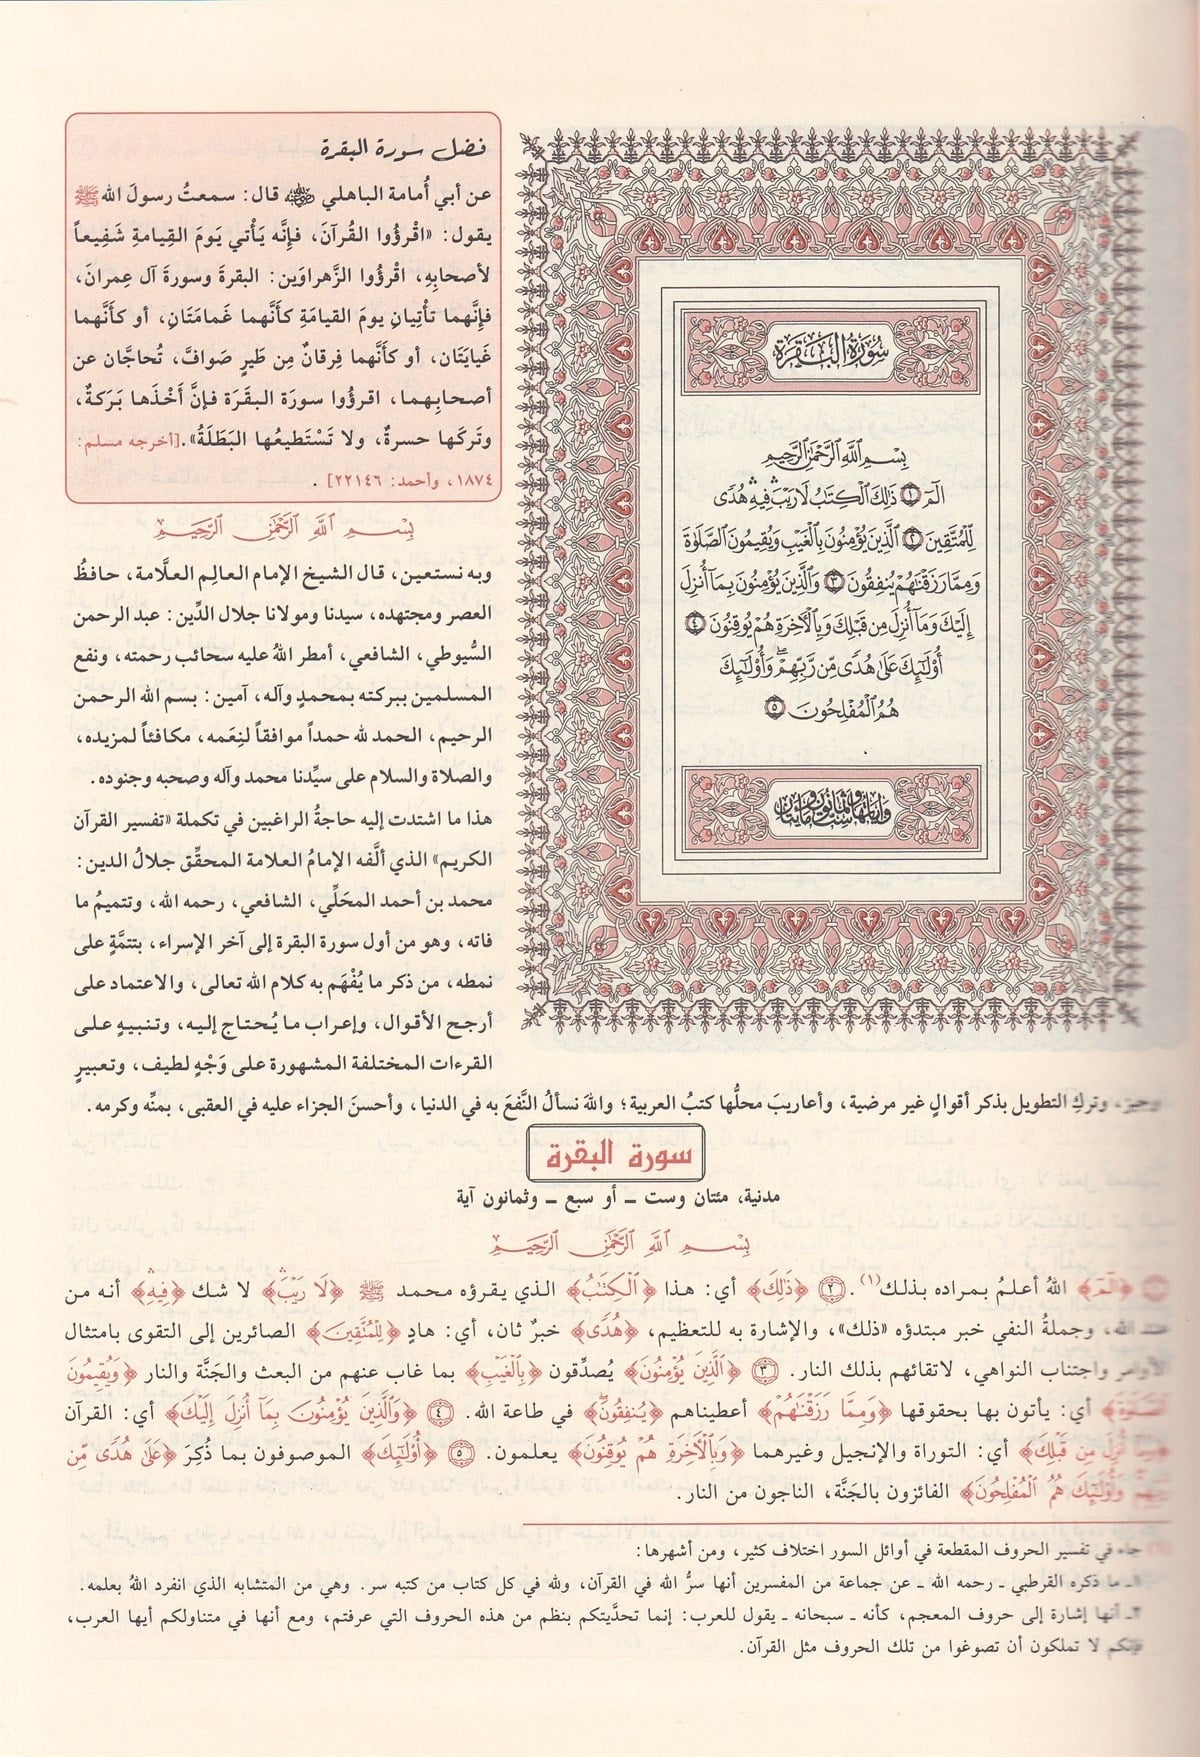 سُورَةُ الْبَقَرَةِ
بِسْمِ ٱللَّهِ ٱلرَّحْمَٰنِ ٱلرَّحِيمِ
الٓمٓ ١ ذَٰلِكَ ٱلْكِتَٰبُ لَا رَيْبَ ۛ فِيهِ ۛ هُدًى
لِّلْمُتَّقِينَ ٢ ٱلَّذِينَ يُؤْمِنُونَ بِٱلْغَيْبِ وَيُقِيمُونَ ٱلصَّلَوٰةَ
وَمِمَّا رَزَقْنَٰهُمْ يُنفِقُونَ ٣ وَٱلَّذِينَ يُؤْمِنُونَ بِمَآ أُنزِلَ
إِلَيْكَ وَمَآ أُنزِلَ مِن قَبْلِكَ وَبِٱلْءَاخِرَةِ هُمْ يُوقِنُونَ ٤
أُو۟لَٰٓئِكَ عَلَىٰ هُدًى مِّن رَّبِّهِمْ ۖ وَأُو۟لَٰٓئِكَ
هُمُ ٱلْمُفْلِحُونَ ٥
وآياتها ست وثمانون ومايتان
فضل سورة البقرة
عن أبي أُمامة الباهلي رضي الله عنه قال: سمعتُ رسولَ الله ﷺ
يقول: «اقْرؤُوا القُرآنَ، فإِنَّه يَأْتي يَومَ القِيامةِ شَفِيعاً
لأصحابِهِ، اقْرؤُوا الزَّهراوَين: البقرةَ وسورةَ آل عِمرانَ،
فإِنَّهما تأْتِيانِ يومَ القيامَةِ كأَنَّهما غَمامَتَانِ، أو كأَنَّهما
غَيايَتَان، أو كأَنَّهما فِرقانٌ مِن طَيرٍ صَوافَّ، تُحاجَّان عن
أصحابِهما، اقرؤُوا سورَة البقَرَة فإنَّ أَخْذَها بَرَكةٌ،
وتَركَها حسرةٌ، ولا تَسْتَطيعُها البَطَلَةُ».[أخرجه مسلم:
١٨٧٤، وأحمد: ٢٢١٤٦] .
بِسْمِ ٱللَّهِ ٱلرَّحْمَٰنِ ٱلرَّحِيمِ
وبه نستعين، قال الشيخ الإمام العالِم العلَّامة، حافظُ
العصر ومجتهده، سيدنا ومولانا جلال الدِّين: عبد الرحمن
السُّيوطي، الشافعي، أمطر اللهُ عليه سحائب رحمته، ونفع
المسلمين ببركته بمحمدٍ وآله، آمين: بسم الله الرحمن
الرحيم، الحمد لله حمداً موافقاً لنِعَمه، مكافئاً لمزيده،
والصلاة والسلام على سيِّدنا محمد وآله وصحبه وجنوده.
هذا ما اشتدت إليه حاجةُ الراغبين في تكملة «تفسير القرآن
الكريم» الذي ألَّفه الإمامُ العلامة المحقِّق جلالُ الدين:
محمد بن أحمد المحَلِّي، الشافعي، رحمه الله، وتتميمُ ما
فاته، وهو من أول سورة البقرة إلى آخر الإسراء، بتتمَّةٍ على
نمطه، من ذكر ما يُفْهَم به كلام الله تعالى، والاعتماد على
أرجح الأقوال، وإعراب ما يُحتاج إليه، وتنبيهٍ على
القرءات المختلفة المشهورة على وَجْهٍ لطيف، وتعبيرٍ
وجيز، وتركِ التطويل بذكر أقوالٍ غير مرضية، وأعاريبَ محلُّها كتبُ العربية؛ واللهَ نسألُ النَّفعَ به في الدنيا، وأحسنَ الجزاء عليه في العقبى، بمنِّه وكرمه.
سورة البقرة
مدنية، مئتان وست ـ أو سبع ـ وثمانون آية
بِسْمِ ٱللَّهِ ٱلرَّحْمَٰنِ ٱلرَّحِيمِ
﴿الٓمٓ﴾ اللهُ أعلمُ بمراده بذلك(١). ٢ ﴿ذَٰلِكَ﴾ أي: هذا ﴿ٱلْكِتَٰبُ﴾ الذي يقرؤه محمد ﷺ ﴿لَا رَيْبَ ۛ﴾ لا شك ﴿فِيهِ ۛ﴾ أنه من
عند الله، وجملةُ النفي خبر مبتدؤه «ذلك»، والإشارة به للتعظيم، ﴿هُدًى﴾ خبرٌ ثان، أي: هادٍ ﴿لِّلْمُتَّقِينَ﴾ الصائرين إلى التقوى بامتثال
الأوامر واجتناب النواهي، لاتقائهم بذلك النار. ٣ ﴿ٱلَّذِينَ يُؤْمِنُونَ﴾ يُصدِّقون ﴿بِٱلْغَيْبِ﴾ بما غاب عنهم من البعث والجَنَّة والنار ﴿وَيُقِيمُونَ
ٱلصَّلَوٰةَ﴾ أي: يأتون بها بحقوقها ﴿وَمِمَّا رَزَقْنَٰهُمْ﴾ أعطيناهم ﴿يُنفِقُونَ﴾ في طاعة الله. ٤ ﴿وَٱلَّذِينَ يُؤْمِنُونَ بِمَآ أُنزِلَ إِلَيْكَ﴾ أي: القرآن
﴿وَمَآ أُنزِلَ مِن قَبْلِكَ﴾ أي: التوراة والإنجيل وغيرهما ﴿وَبِٱلْءَاخِرَةِ هُمْ يُوقِنُونَ﴾ يعلمون. ٥ ﴿أُو۟لَٰٓئِكَ﴾ الموصوفون بما ذُكِرَ ﴿عَلَىٰ هُدًى مِّن
رَّبِّهِمْ وَأُو۟لَٰٓئِكَ هُمُ ٱلْمُفْلِحُونَ﴾ الفائزون بالجَنَّة، الناجون من النار.
جاء في تفسير الحروف المقطعة في أوائل السور اختلاف كثير، ومن أشهرها:
ـ ما ذكره القرطبي ـ رحمه الله ـ عن جماعة من المفسرين أنها سرُّ الله في القرآن، ولله في كل كتاب من كتبه سر. وهي من المتشابه الذي انفرد اللهُ بعلمه.
٢ـ أنها إشارة إلى حروف المعجم، كأنه ـ سبحانه ـ يقول للعرب: إنما تحدَّيتكم بنظم من هذه الحروف التي عرفتم، ومع أنها في متناولكم أيها العرب،
فإنكم لا تملكون أن تصوغوا من تلك الحروف مثل القرآن.